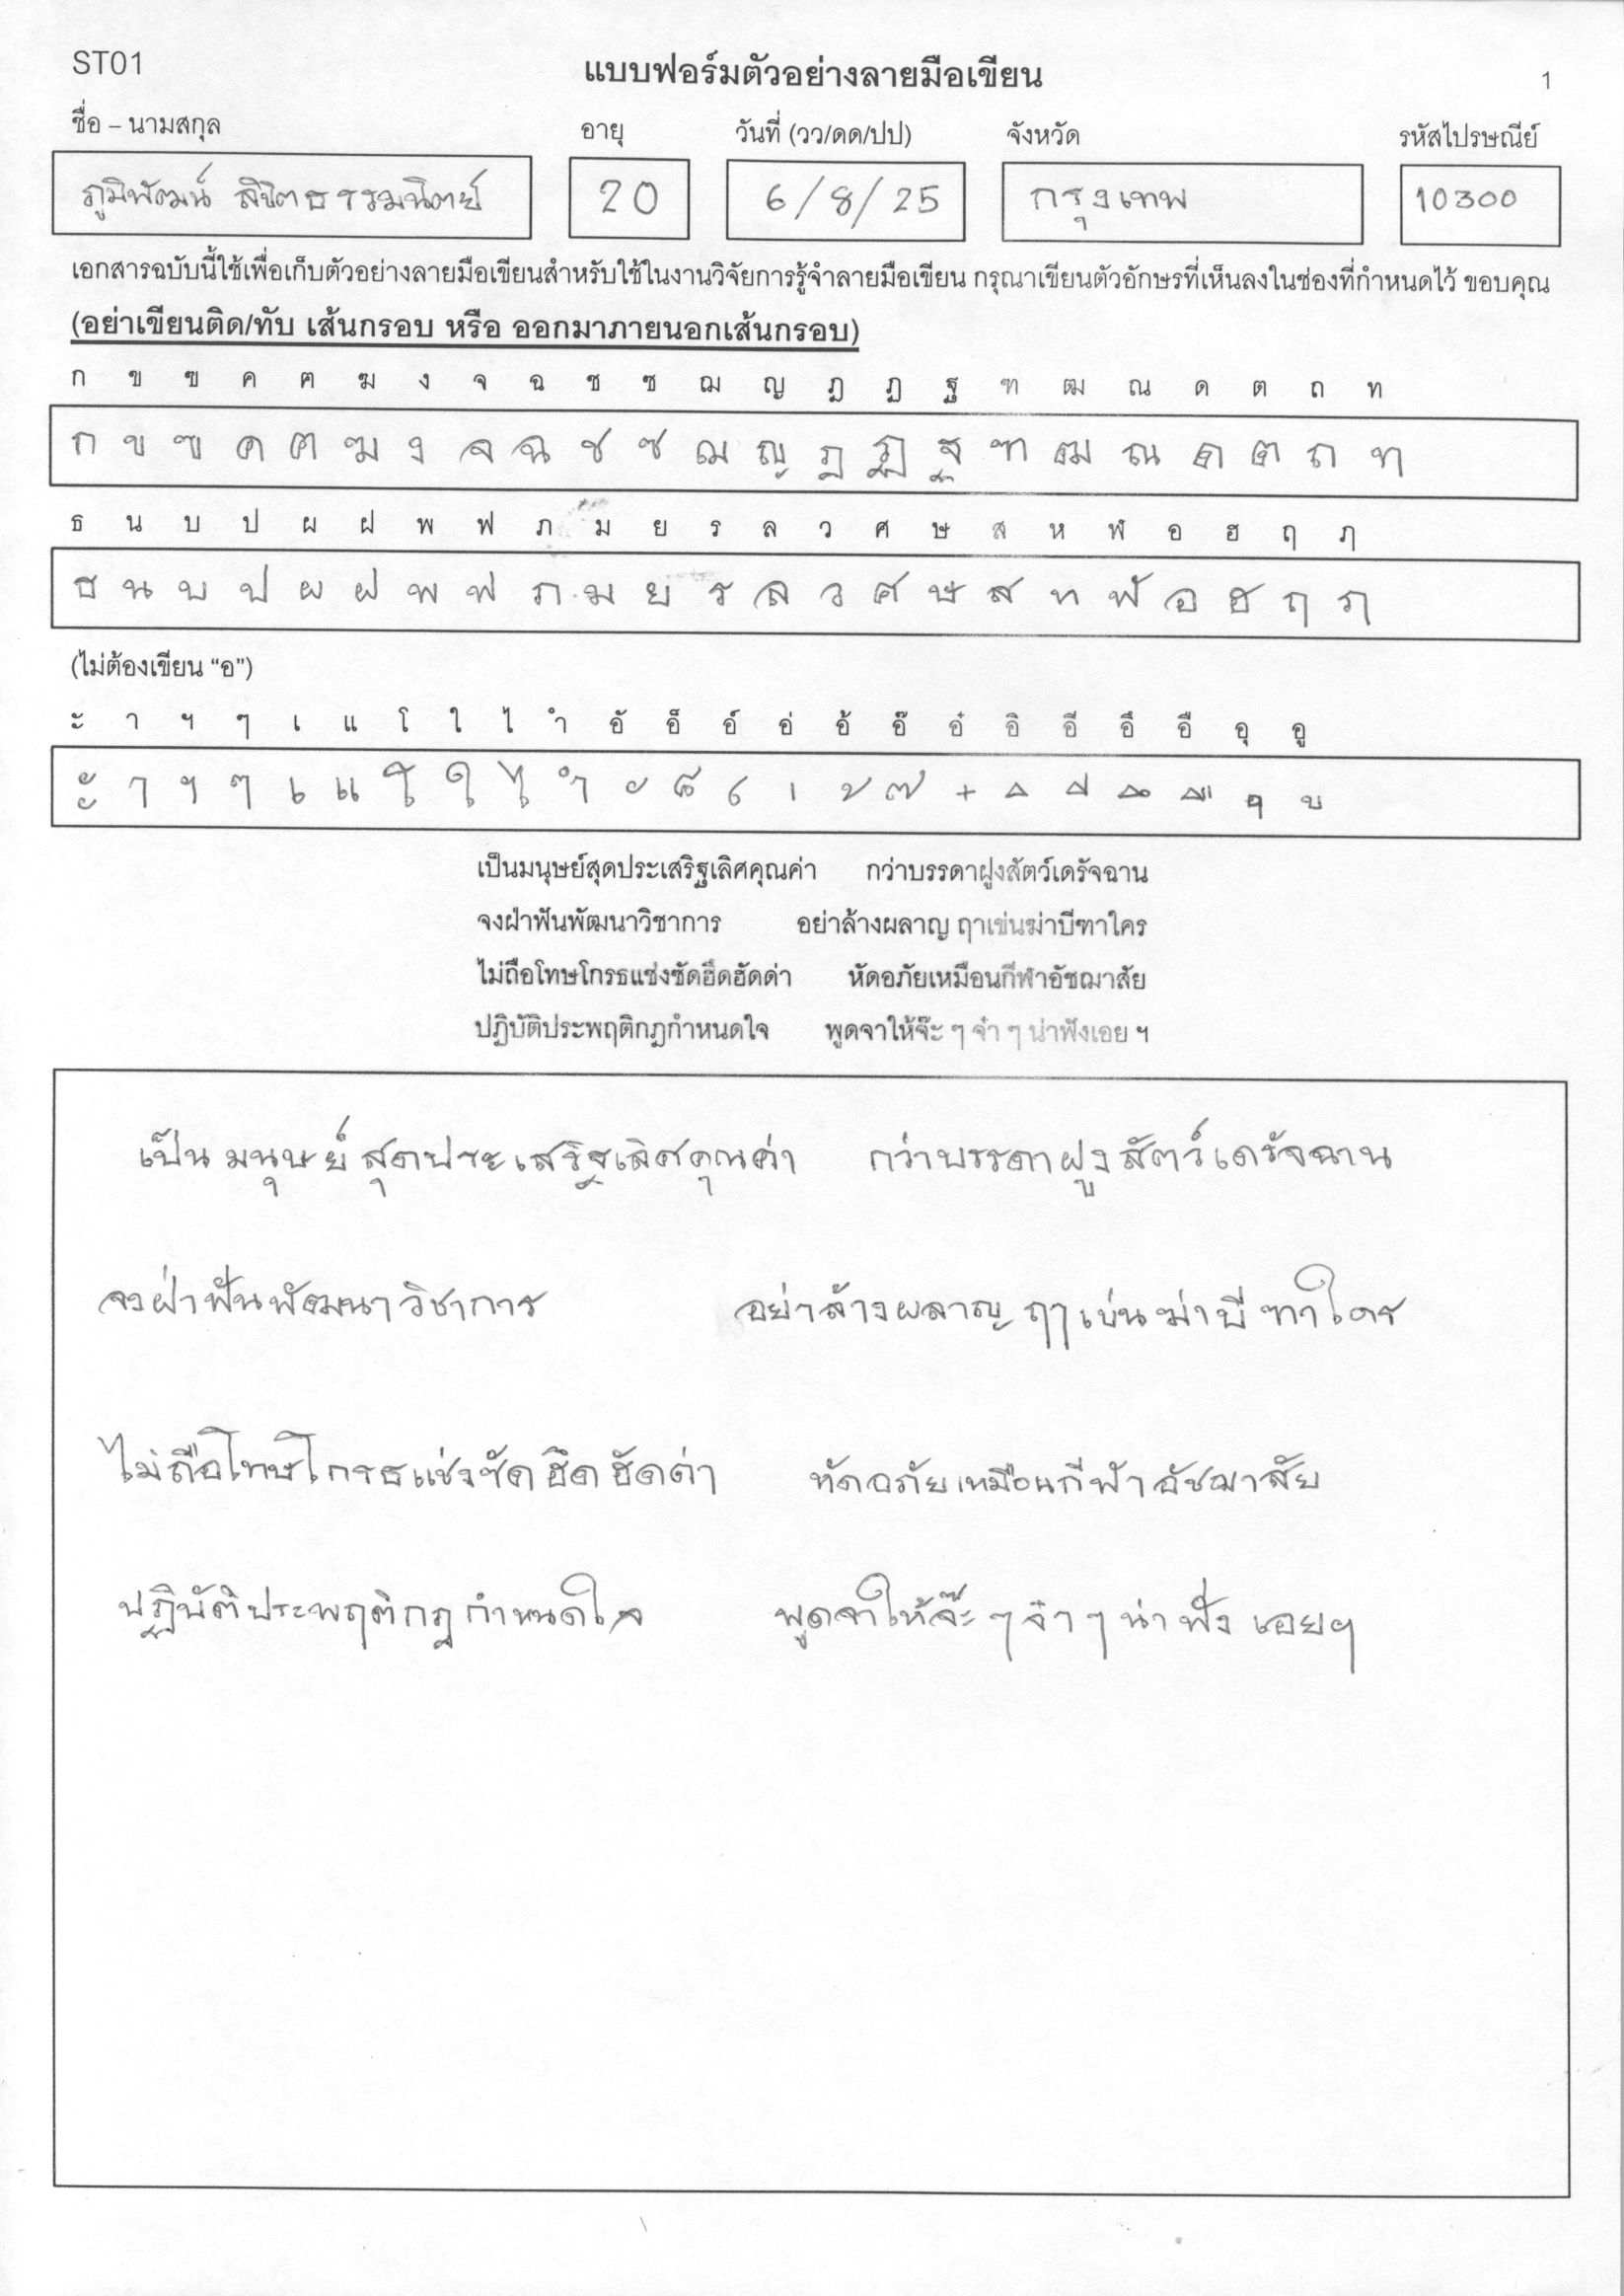 ST01
แบบฟอร์มตัวอย่างลายมือเขียน
1
ชื่อ – นามสกุล อายุ วันที่ (วว/ดด/ปป) จังหวัด รหัสไปรษณีย์
ภูมิพัฒน์ ลิขิตธรรมนิตย์ 20 6/8/25 กรุงเทพ 10300
เอกสารฉบับนี้ใช้เพื่อเก็บตัวอย่างลายมือเขียนสำหรับใช้ในงานวิจัยการรู้จำลายมือเขียน กรุณาเขียนตัวอักษรที่เห็นลงในช่องที่กำหนดไว้ ขอบคุณ
(อย่าเขียนติด/ทับ เส้นกรอบ หรือ ออกมาภายนอกเส้นกรอบ)
ก ข ฃ ค ฅ ฆ ง จ ฉ ช ซ ฌ ญ ฎ ฏ ฐ ฑ ฒ ณ ด ต ถ ท
ก ข ฃ ค ฅ ฆ ง จ ฉ ช ซ ฌ ญ ฎ ฏ ฐ ฑ ฒ ณ ด ต ถ ท
ธ น บ ป ผ ฝ พ ฟ ภ ม ย ร ล ว ศ ษ ส ห ฬ อ ฮ ฤ ภ
ธ น บ ป ผ ฝ พ ฟ ภ ม ย ร ล ว ศ ษ ส ห ฬ อ ฮ ฤ ภ
(ไม่ต้องเขียน “อ”)
ะ า ฯ ๆ เ แ โ ใ ไ ำ อั อ็ อ์ อ่ อ้ อ๊ อ๋ อิ อี อึ อื อุ อู
ะ า ฯ ๆ เ แ โ ใ ไ ำ ั ็ ์ ่ ้ ๊ ๋ ิ ี ึ ื ุ ู
เป็นมนุษย์สุดประเสริฐเลิศคุณค่า กว่าบรรดาฝูงสัตว์เดรัจฉาน
จงฝ่าฟันพัฒนาวิชาการ อย่าล้างผลาญ ฤาเข่นฆ่าบีฑาใคร
ไม่ถือโทษโกรธแช่งซัดฮึดฮัดด่า หัดอภัยเหมือนกีฬาอัชฌาสัย
ปฏิบัติประพฤติกฎกำหนดใจ พูดจาให้จ๊ะ ๆ จ๋า ๆ น่าฟังเอย ฯ
เป็นมนุษย์สุดประเสริฐเลิศคุณค่า กว่าบรรดาฝูงสัตว์เดรัจฉาน
จงฝ่าฟันพัฒนาวิชาการ อย่าล้างผลาญ ฤาเข่นฆ่าบีฑาใคร
ไม่ถือโทษโกรธแช่งซัดฮึดฮัดด่า หัดอภัยเหมือนกีฬาอัชฌาสัย
ปฏิบัติประพฤติกฎกำหนดใจ พูดจาให้จ๊ะ ๆ จ๋า ๆ น่าฟังเอยฯ